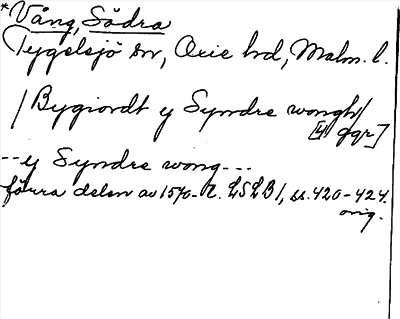 *Vång, Södra
Tygelsjö sn, Oxie hd, Malm. l.
/ Bygiordt y Syndre wongh /
[4 ggr]
-- y Syndre wong ---
förra delen av 1570-t. LSLB 1, ss. 420-424.
orig.